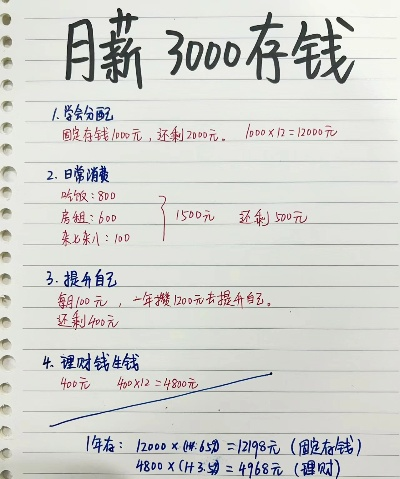 月薪 3000存钱
1. 学会分配
固定存钱1000元，还剩2000元。 1000×12=12000元
2. 日常消费
吃饭：800
房租：600
杂七杂八：100
1500元 还剩500元
3. 提升自己
每月100元，一年攒1200元去提升自己。
还剩400元
4. 理财钱生钱
400元 400×12=4800元
1年存： 12000×(1+1.65%)=12198元（固定存钱）
4800×(1+3.5%)=4968元（理财）